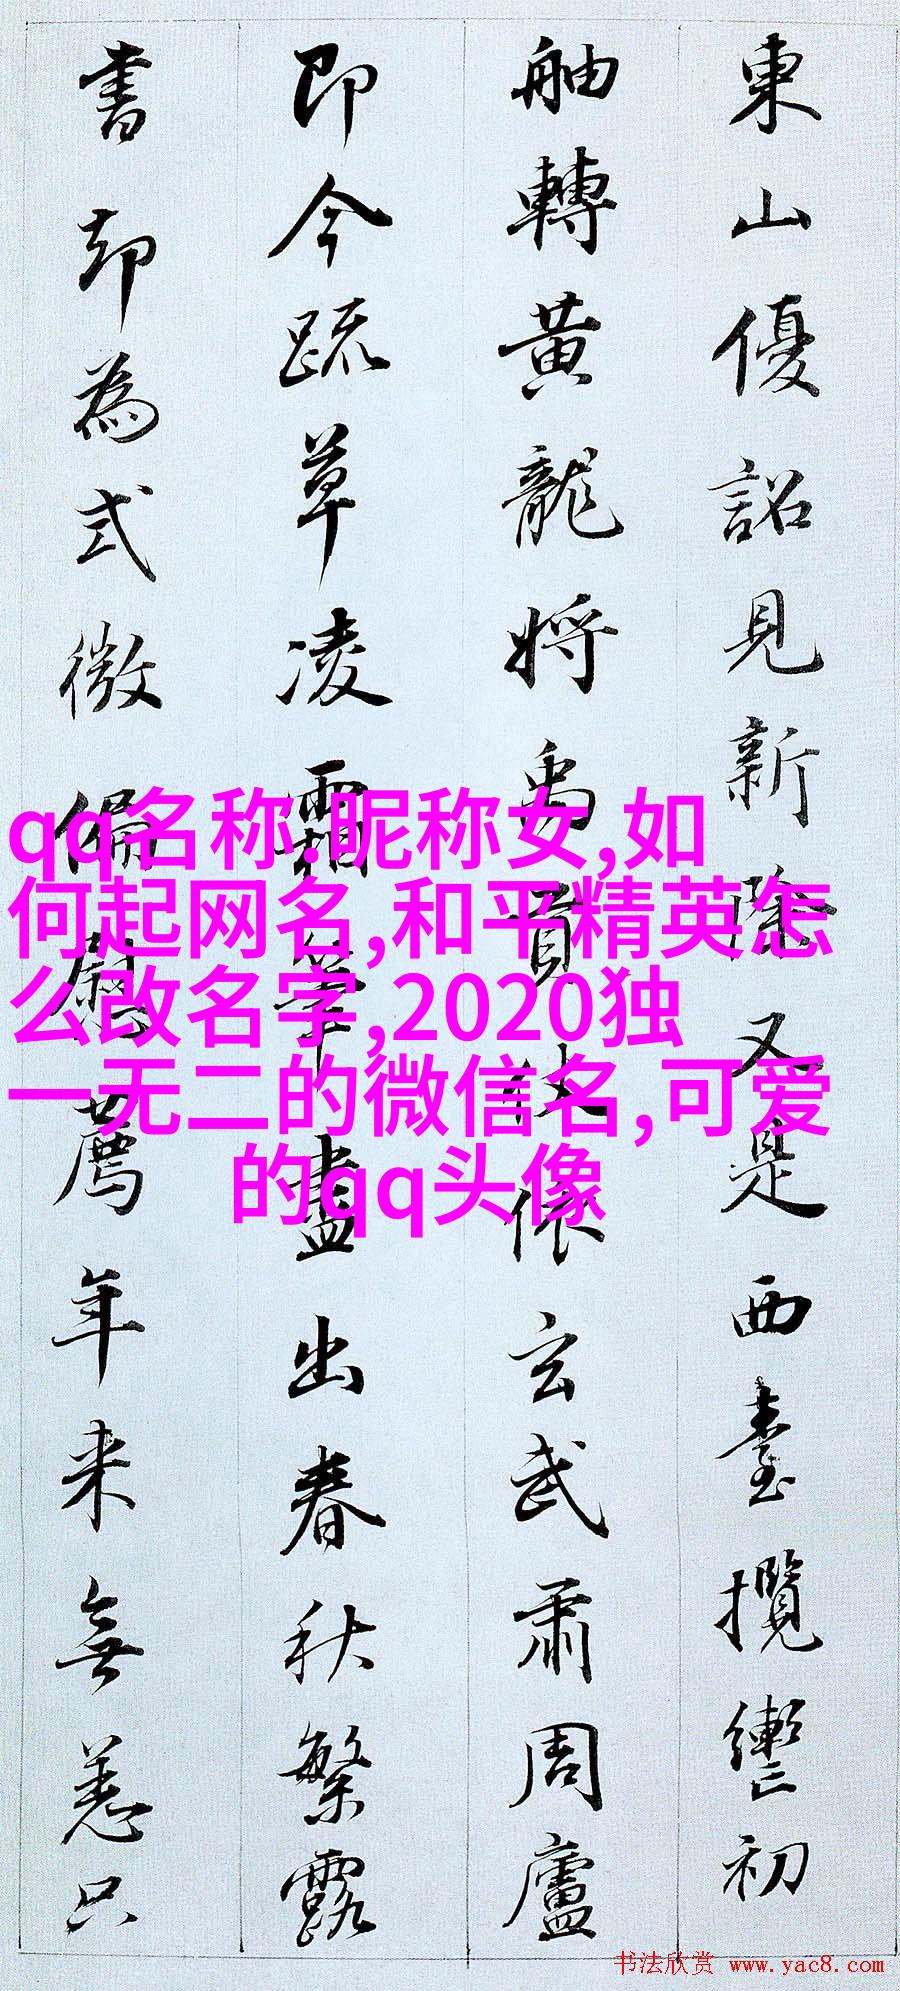 東山優詔見新除又是西臺攬轡初
舳轉黃龍將禹貢仗依玄武肅周廬
即今疏草凌霜筆盡出春秋繁露
書却為式微偏慰薦年来無恙只
qq名称.昵称女,如
何起网名,和平精英怎
么改名字,2020独
一无二的微信名,可爱
的qq头像
书法欣赏 www.yac8.com